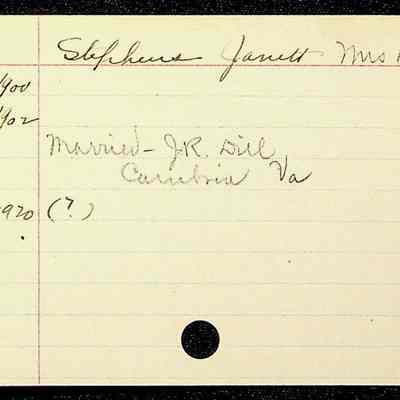 Stephens Janett Mrs
1900
1902
Married - J.R. Dill
Cambria Va
1920 (?)